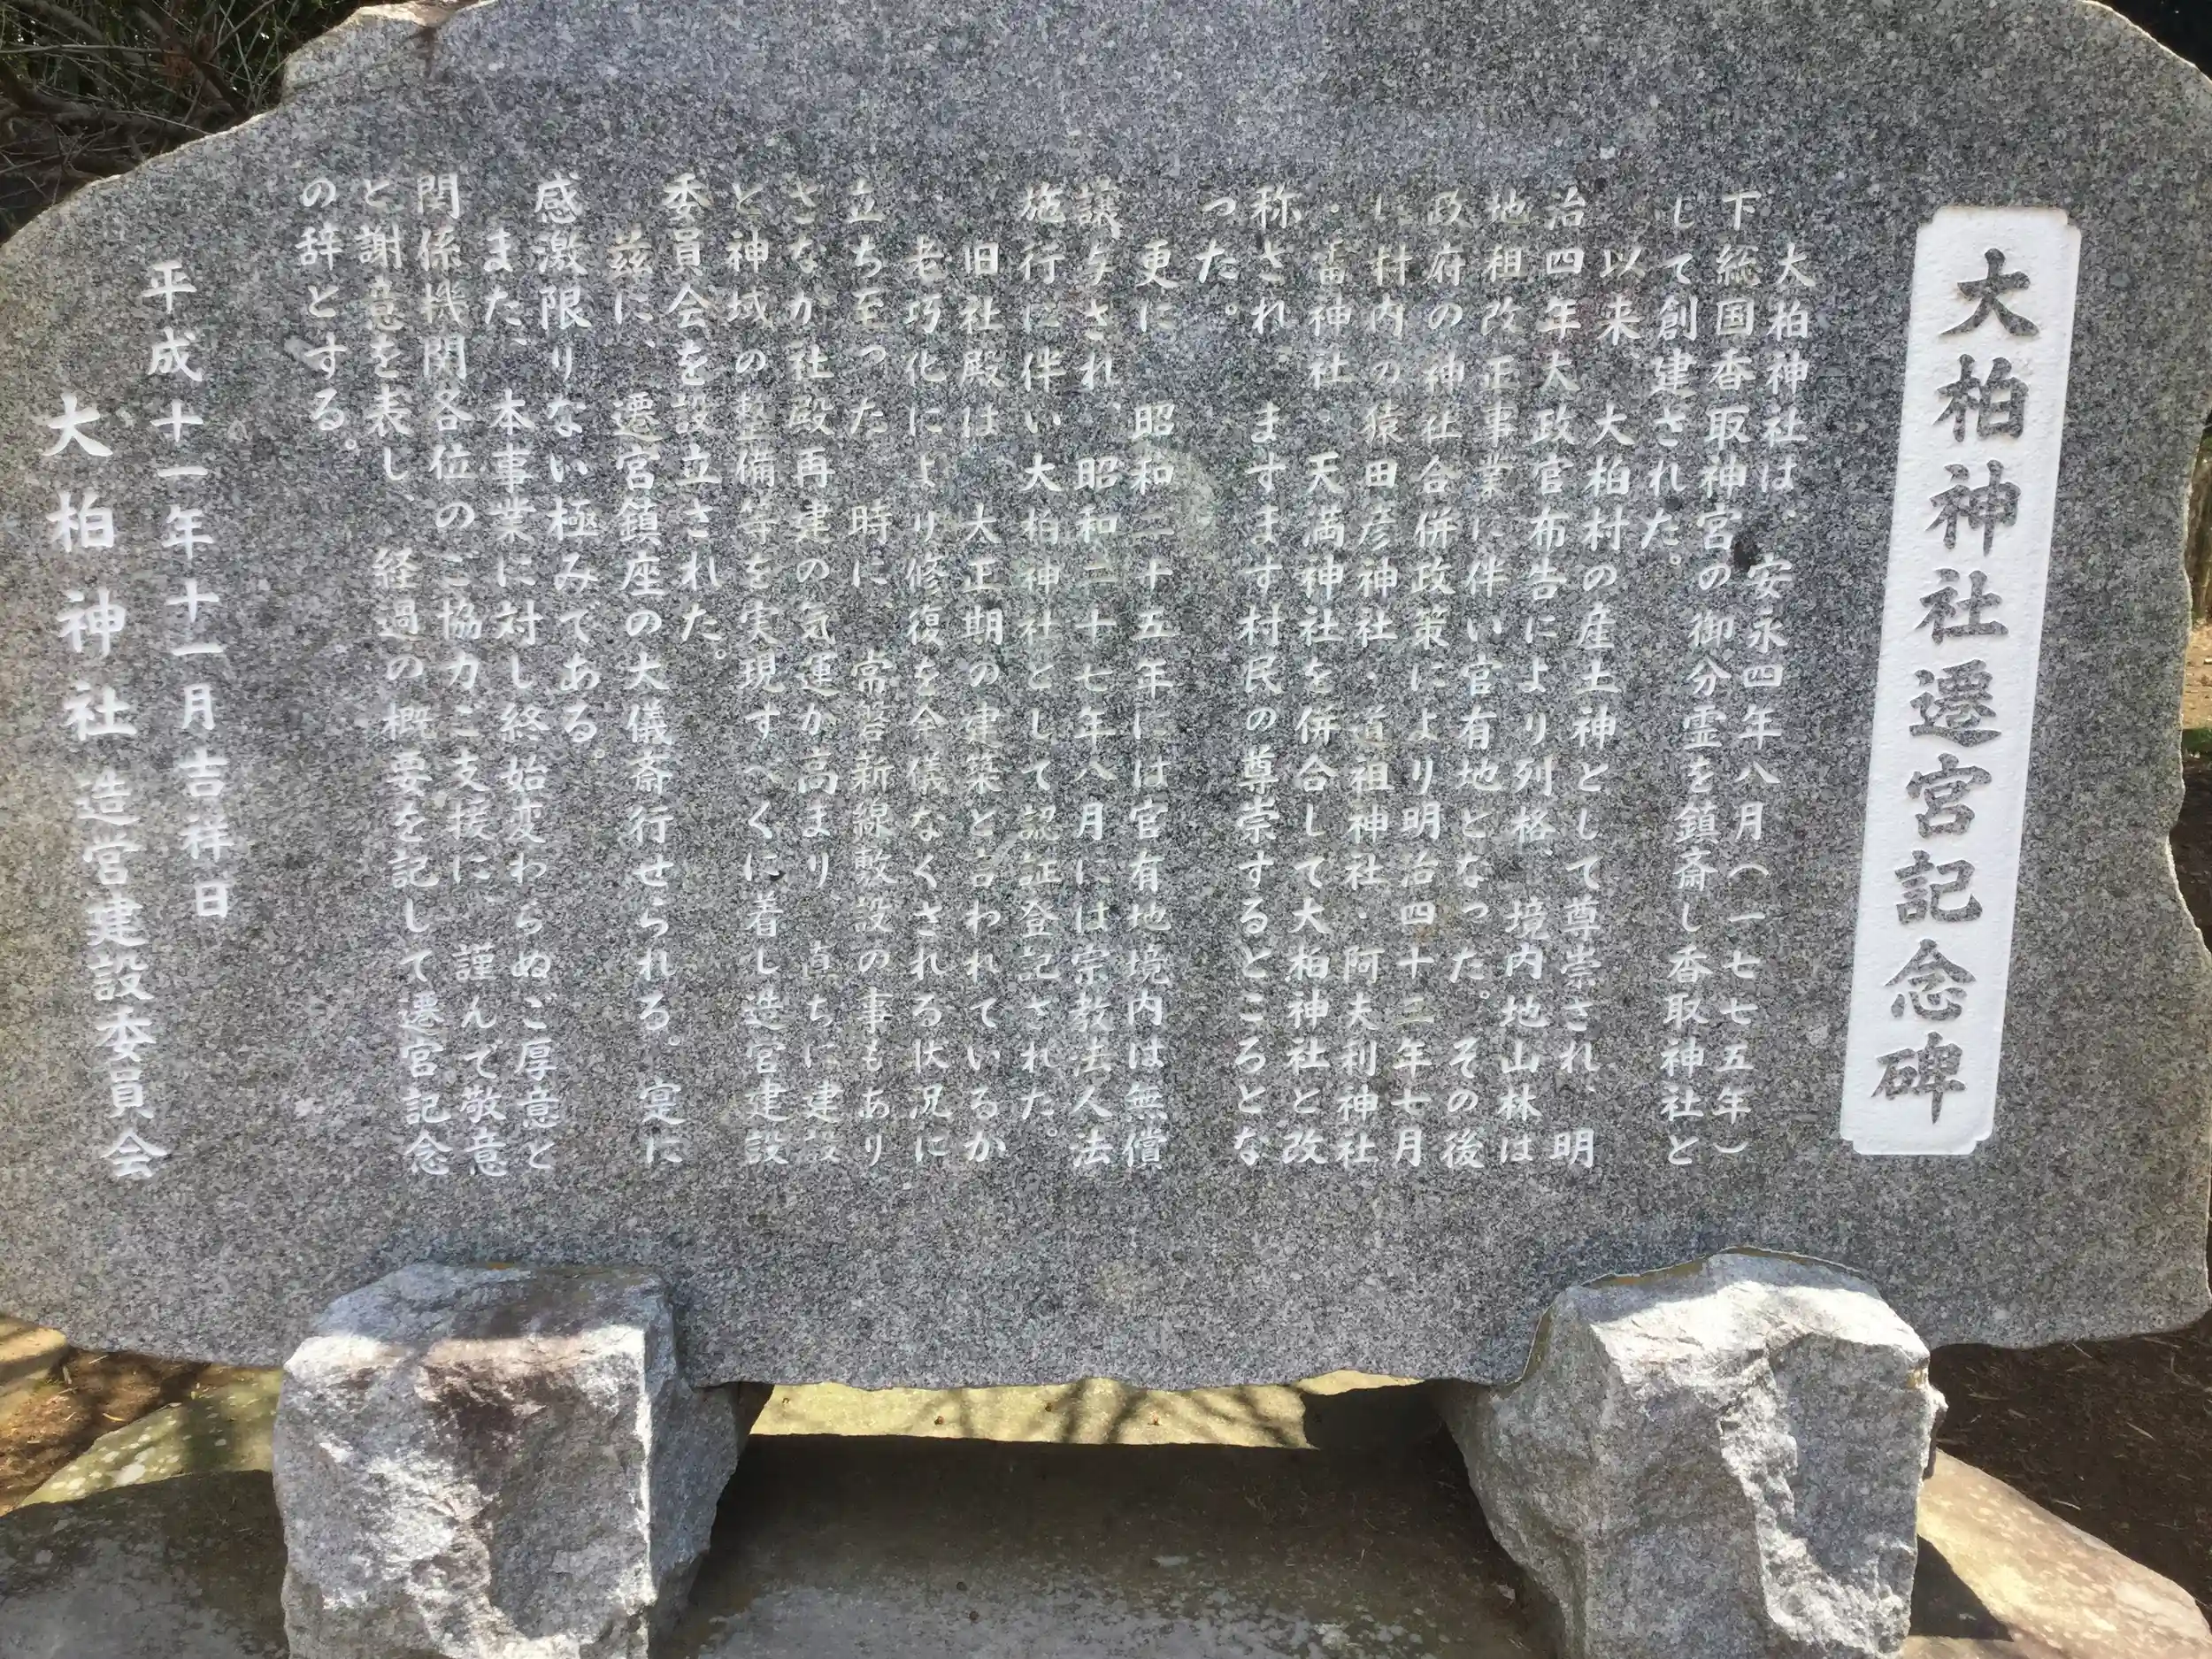 大柏神社遷宮記念碑
大柏神社は、安永四年八月(一七七五年)
下総国香取神宮の御分霊を鎮斎し香取神社と
して創建された。
以来、大柏村の産土神として尊崇され、明
治四年大政官布告により列格、境内地山林は
地租改正事業に伴い官有地となった。その後
政府の神社合併政策により明治四十三年七月
に村内の猿田彦神社・道祖神社・阿夫利神社
・雷神社・天満神社を併合して大柏神社と改
称され、ますます村民の尊崇するところとな
った。
更に、昭和二十五年には官有地境内は無償
譲与され、昭和二十七年八月には宗教法人法
施行に伴い大柏神社として認証登記された。
旧社殿は、大正期の建築と言われているが
、老巧化により修復を余儀なくされる状況に
立ち至った。時に、常磐新線敷設の事もあり
さなが社殿再建の気運が高まり、直ちに建設
と神域の整備等を実現すべくに着し造宮建設
委員会を設立された。
茲に、遷宮鎮座の大儀斎行せられる。寔に
感激限りない極みである。
また、本事業に対し終始変わらぬご厚意と
関係機関各位のご協力ご支援に、謹んで敬意
と謝意を表し、経過の概要を記して遷宮記念
の辞とする。
平成十一年十一月吉祥日
大柏神社造宮建設委員会